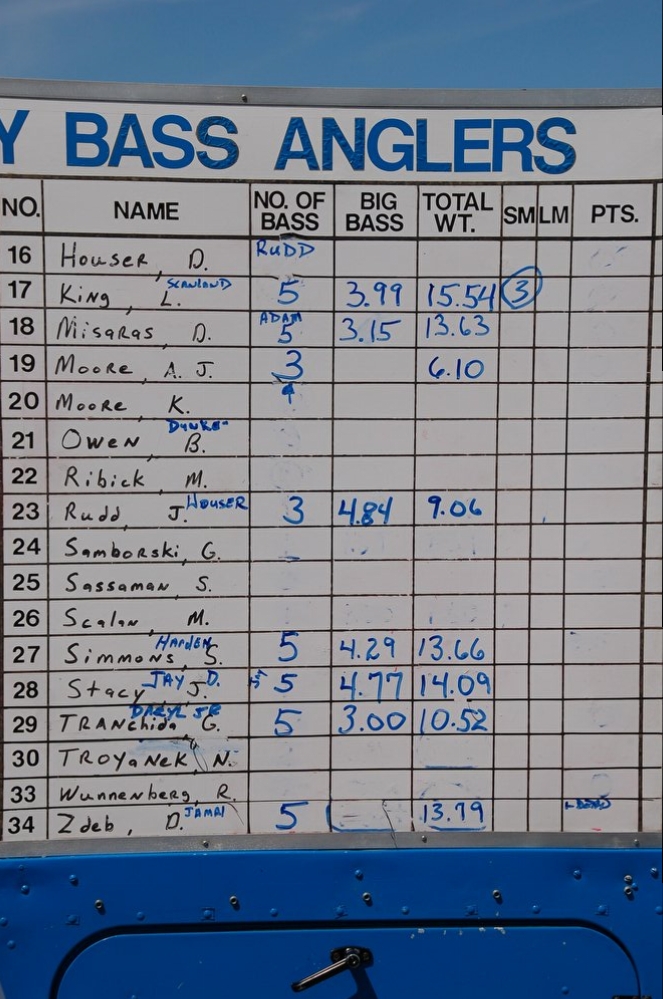 Y BASS ANGLERS
NO. NAME NO. OF BASS BIG BASS TOTAL WT. SM LM PTS.
16 Houser, D. RUDD
17 King, L. SCANLAND 5 3.99 15.54 3
18 Misaras, D. ADAM 5 3.15 13.63
19 Moore, A. J. 3 6.10
20 Moore, K.
21 Owen, B.
22 Ribick, M.
23 Rudd, J. HOUSER 3 4.84 9.06
24 Samborski, G.
25 Sassaman, S.
26 Scalan, M.
27 Simmons, S. HARDEN 5 4.29 13.66
28 Stacy, J. JAY D. 5 4.77 14.09
29 TRANchida, G. DARYL JR 5 3.00 10.52
30 TROYANEK, N.
33 Wunnenberg, R.
34 Zdeb, D. JAMAI 5 13.79